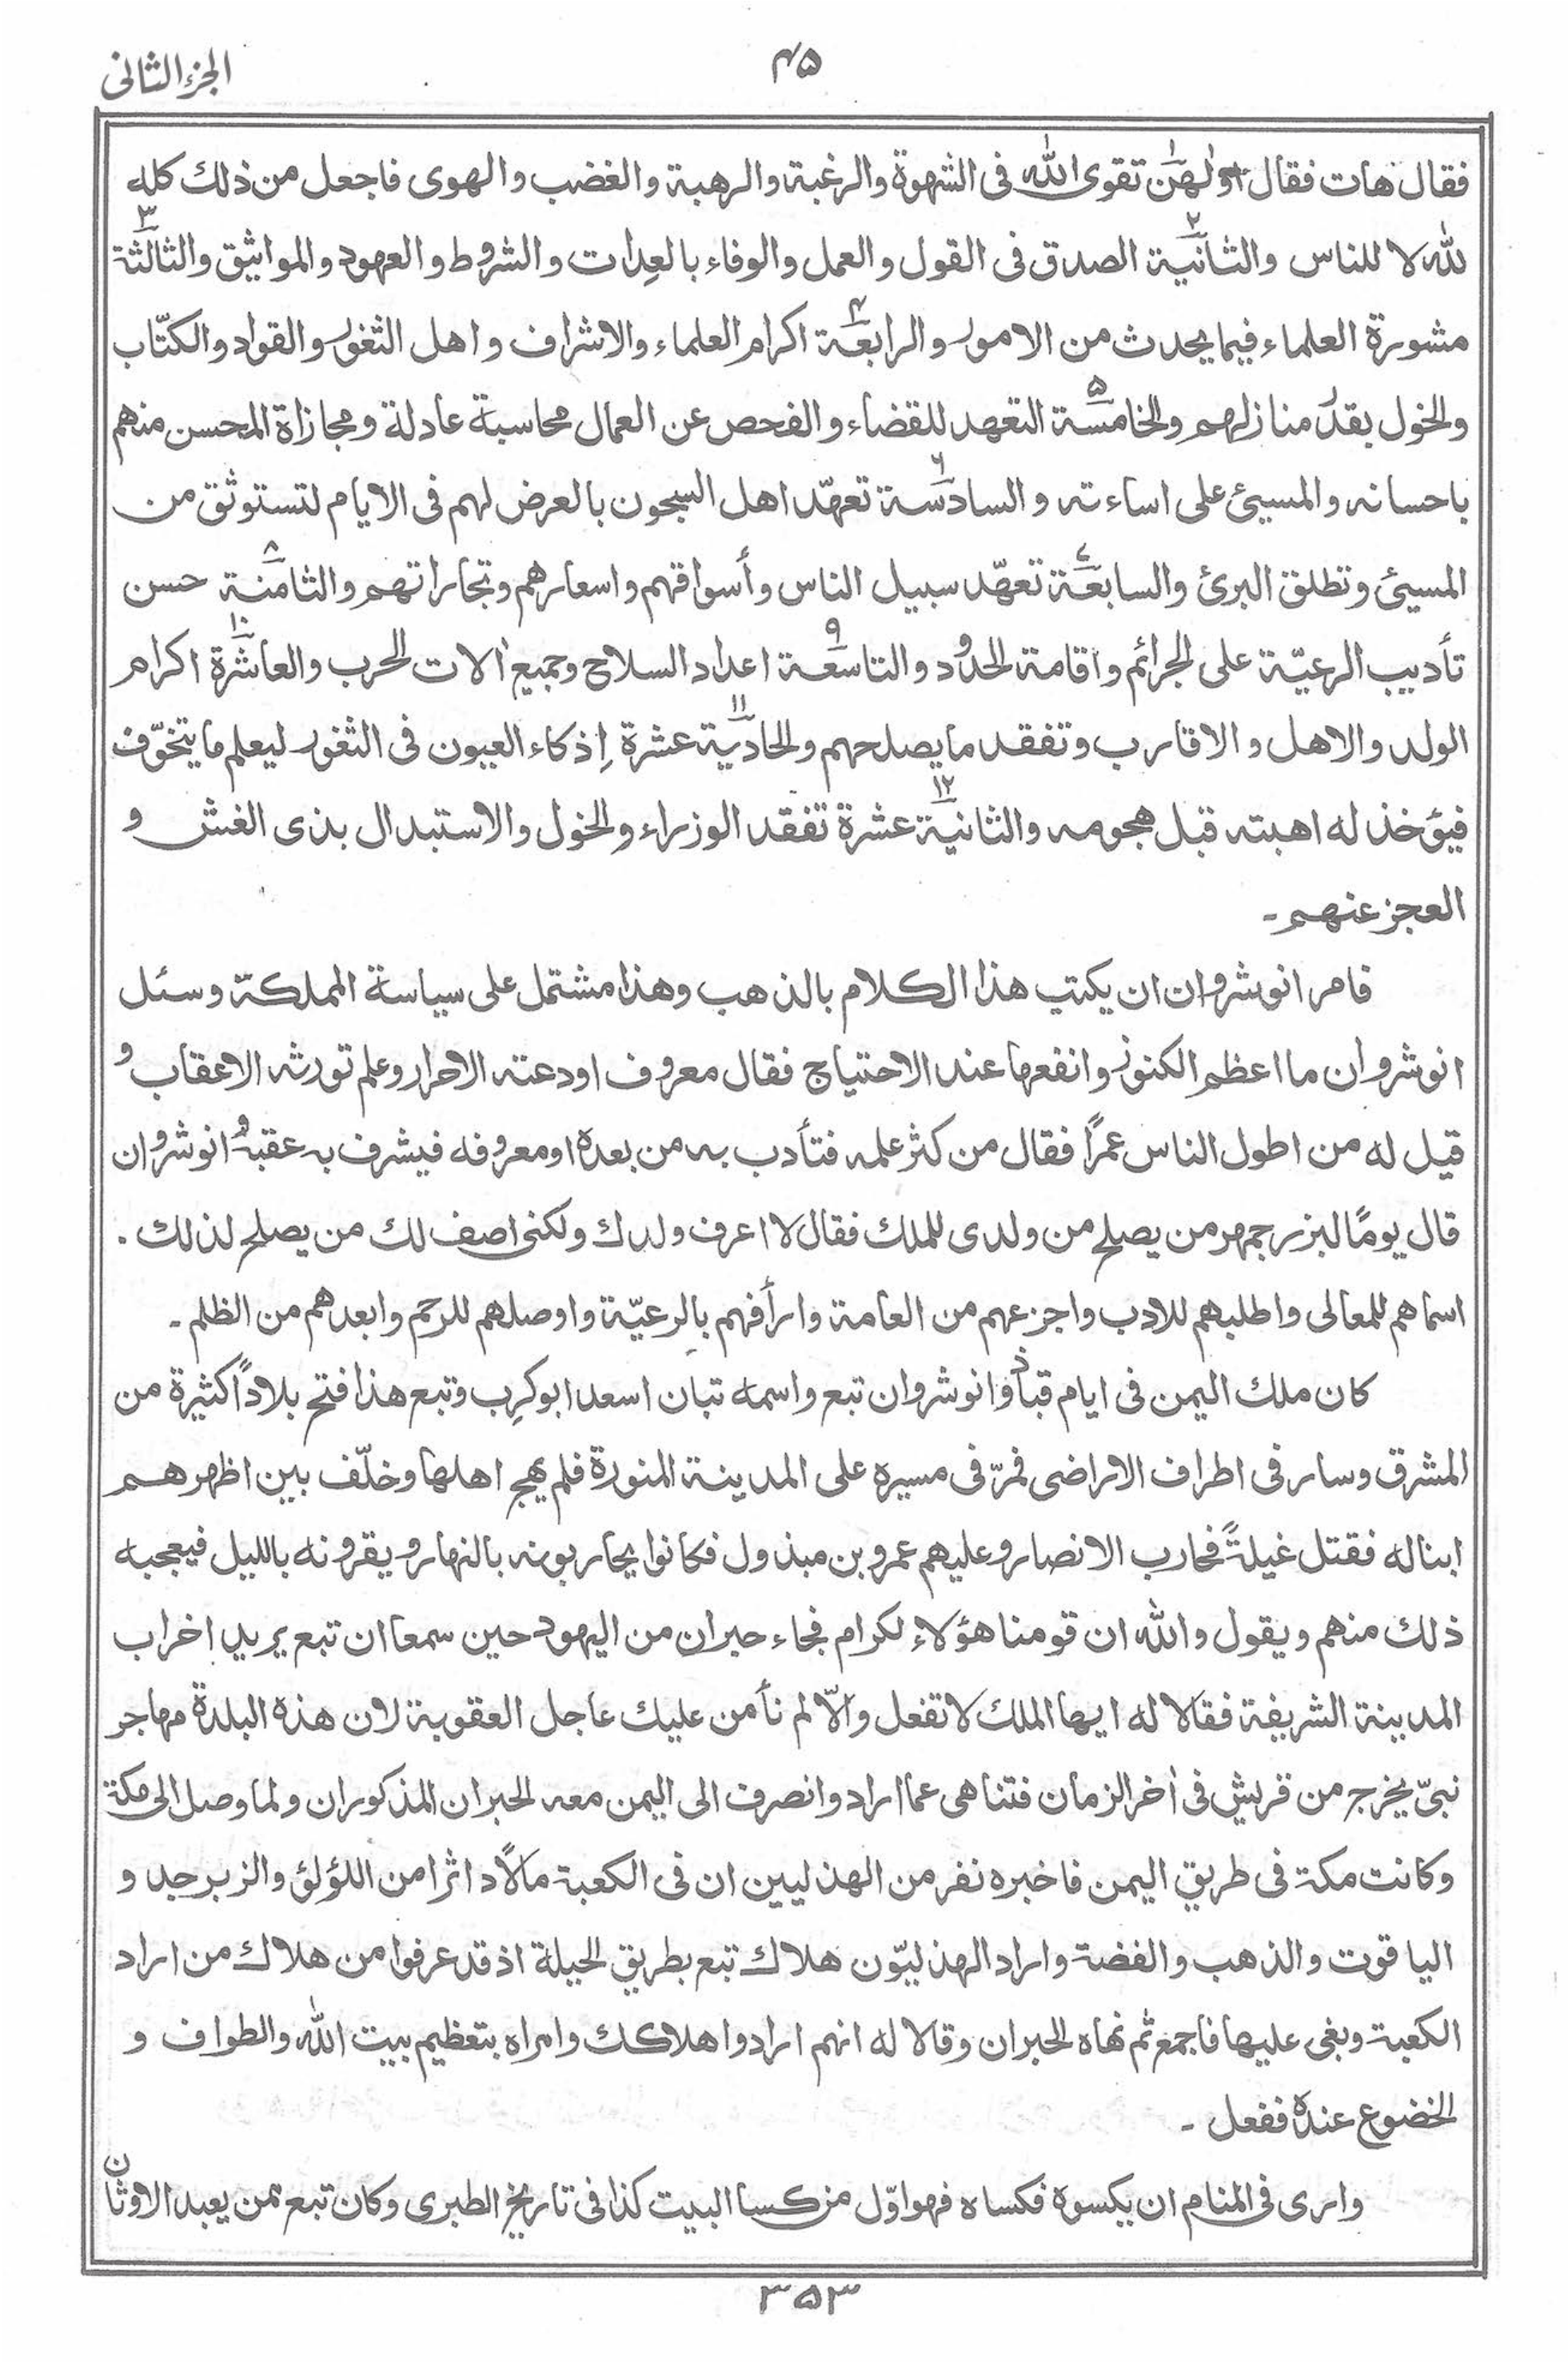 الجزء الثانی
۴۵
فقال هات فقال اولٰهن تقوی الله فی الشهوة والرغبة والرهبة والغضب والهوی فاجعل من ذلك كله
۱
لله لا للناس والثانية الصدق فی القول والعمل والوفاء بالعِدات والشروط والعهود والمواثيق والثالثة
۲ ۳
مشورة العلماء فيما يحدث من الامور والرابعة اكرام العلماء والاشراف واهل الثغور والقواد والكتّاب
۴
والخول بقدر منازلهم والخامسة التعهد للقضاء والفحص عن العمال محاسبة عادلة ومجازاة المحسن منهم
۵
باحسانه والمسیئ علی اساءته والسادسة تعهّد اهل السجون بالعرض لهم فی الايام لتستوثق من
۶
المسیئ وتطلق البرئ والسابعة تعهّد سبيل الناس وأسواقهم واسعارهم وتجاراتهم والثامنة حسن
۷ ۸
تأديب الرعيّة علی الجرائم واقامة الحدود والتاسعة اعداد السلاح وجميع اٰلات الحرب والعاشرة اكرام
۹ ۱۰
الولد والاهل والاقارب وتفقد ما يصلحهم والحادية عشرة إذكاء العيون فی الثغور ليعلم ما يتخوّف
۱۱
فيؤخذ له اهبته قبل هجومه والثانية عشرة تفقد الوزراء والخول والاستبدال بذی الغش و
۱۲
العجز عنهم ۔
فامر انوشروان ان يكتب هذا الكلام بالذهب وهذا مشتمل علی سياسة المملكة وسئل
انوشروان ما اعظم الكنوز وانفعها عند الاحتياج فقال معروف اودعته الاحرار وعلم تورثه الاعقاب و
قيل له من اطول الناس عمرًا فقال من كثر علمه فتأدب به من بعده او معروفه فيشرف به عقبه و انوشروان
قال يومًا لبزرجمهر من يصلح من ولدی للملك فقال لا اعرف ولدك ولكنی اصف لك من يصلح لذلك .
اسماهم للمعالی واطلبهم للادب واجزعهم من العامة وارأفهم بالرعيّة واوصلهم للرحم وابعدهم من الظلم ۔
كان ملك اليمن فی ايام قباذ وانوشروان تبع واسمه تبان اسعد ابوكرِب وتبع هذا فتح بلادًا كثيرة من
المشرق وسار فی اطراف الاراضی فمرّ فی مسيره علی المدينة المنورة فلم يهج اهلها وخلّف بين اظهرهم
ابنا له فقتل غيلةً فحارب الانصار وعليهم عمرو بن مبذول فكانوا يحاربونه بالنهار ويقرونه بالليل فيعجبه
ذلك منهم ويقول والله ان قومنا هؤلاء لكرام فجاء حبران من اليهود حين سمعا ان تبع يريد اخراب
المدينة الشريفة فقالا له ايها الملك لا تفعل والّا لم نأمن عليك عاجل العقوبة لان هذه البلدة مهاجر
نبیّ يخرج من قريش فی اٰخر الزمان فتناهی عما اراد وانصرف الی اليمن معه الحبران المذكوران ولما وصل الی مكة
وكانت مكة فی طريق اليمن فاخبره نفر من الهذليين ان فی الكعبة مالًا داثرا من اللؤلؤ والزبرجد و
الياقوت والذهب والفضة واراد الهذليّون هلاك تبع بطريق الحيلة اذ قد عرفوا من هلاك من اراد
الكعبة وبغی عليها فاجمع ثم نهاه الحبران وقالا له انهم ارادوا هلاكك وامراه بتعظيم بيت الله والطواف و
الخضوع عنده ففعل ۔
واری فی المنام ان يكسوه فكساه فهو اوّل من كسا البيت كذا فی تاريخ الطبری وكان تبع ممن يعبد الاوثان
۳۵۳